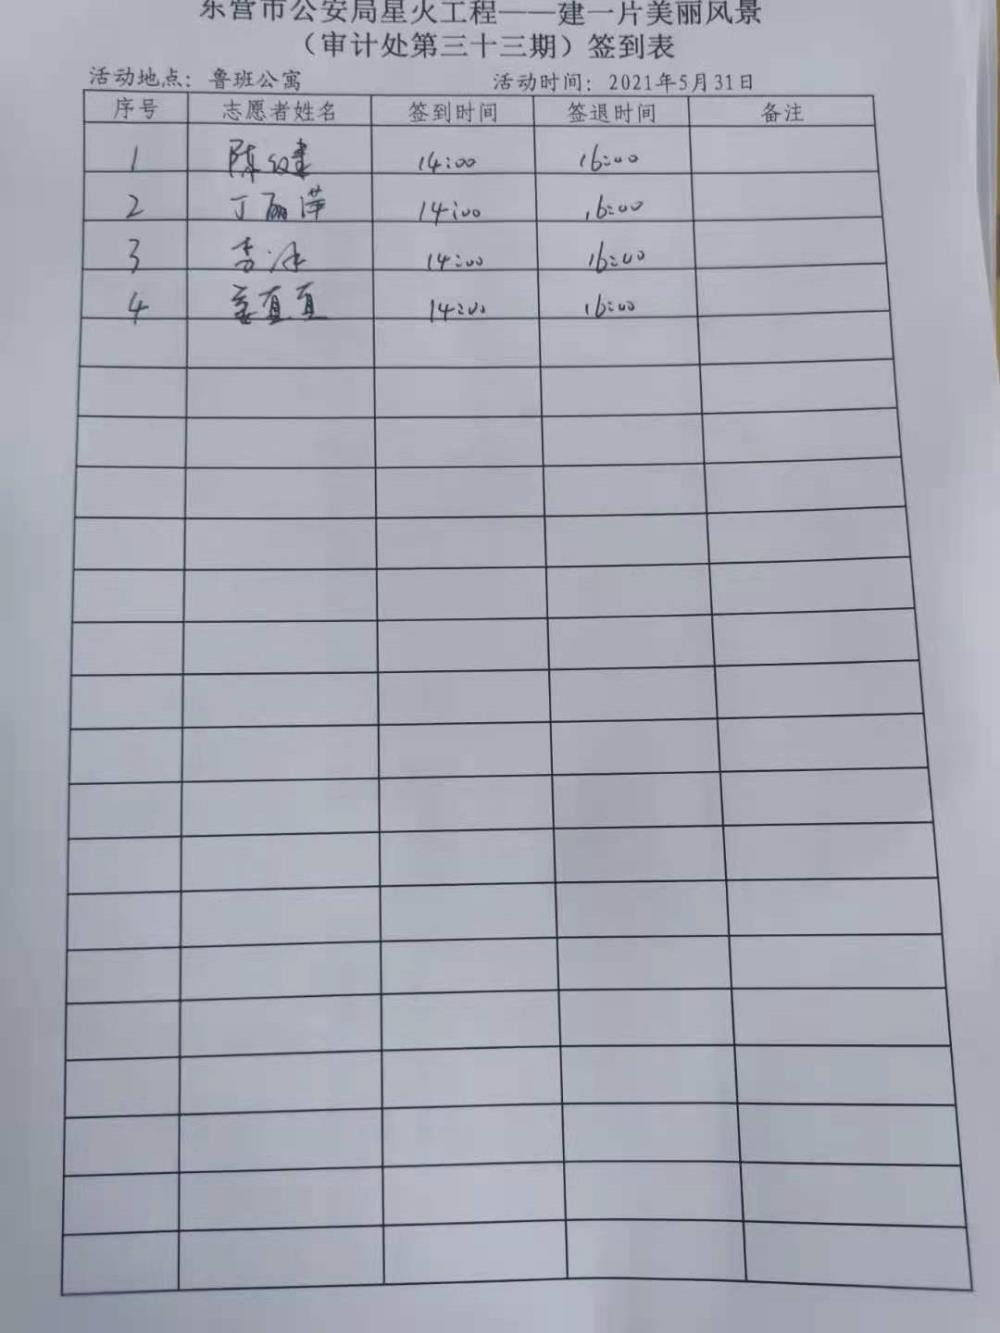 东营市公安局星火工程——建一片美丽风景
（审计处第三十三期）签到表
活动地点：鲁班公寓 活动时间：2021年5月31日
序号 志愿者姓名 签到时间 签退时间 备注
1 陈 建 14:00 16:00
2 丁丽萍 14:00 16:00
3 李冰 14:00 16:00
4 直直 14:00 16:00